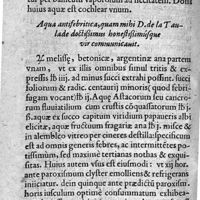 huius aquæ est cochlear vnum.
Aqua antifebritica, quam mihi D. de la Tau-
lade doctissimus honestissimusque
vir communicauit.
♃ melissę, betonicæ, argentinæ ana partem
vnam, vt ex illis omnibus simul tritis & ex-
pressis lb iij. ad minus succi extrahi possint. succi
foliorum & radic. centaurij minoris quod febri-
fugum vocant lb ij. Aquę Astacorum seu cancro-
rum fluuiatilium cum crustis cōquassatorum lb j.
aquæ è fragis lb ij.
aliciæ, aquæ fructuum fragariæ ana lb j. misce, &
ex alembico vitreo in cineres destilla: specificum
est ad omnis generis febres, ac intermittētes po-
tissimum, seu maximè tertianas nothas & exqui-
sitas. Huius autem vsus est eiusmodi: vt iij hor.
ante paroxismum clyster emolliens & refrigerans
iniiciatur, dein quinque ante prædictū paroxism.
horis iusculum optimè consumatum exhibea-